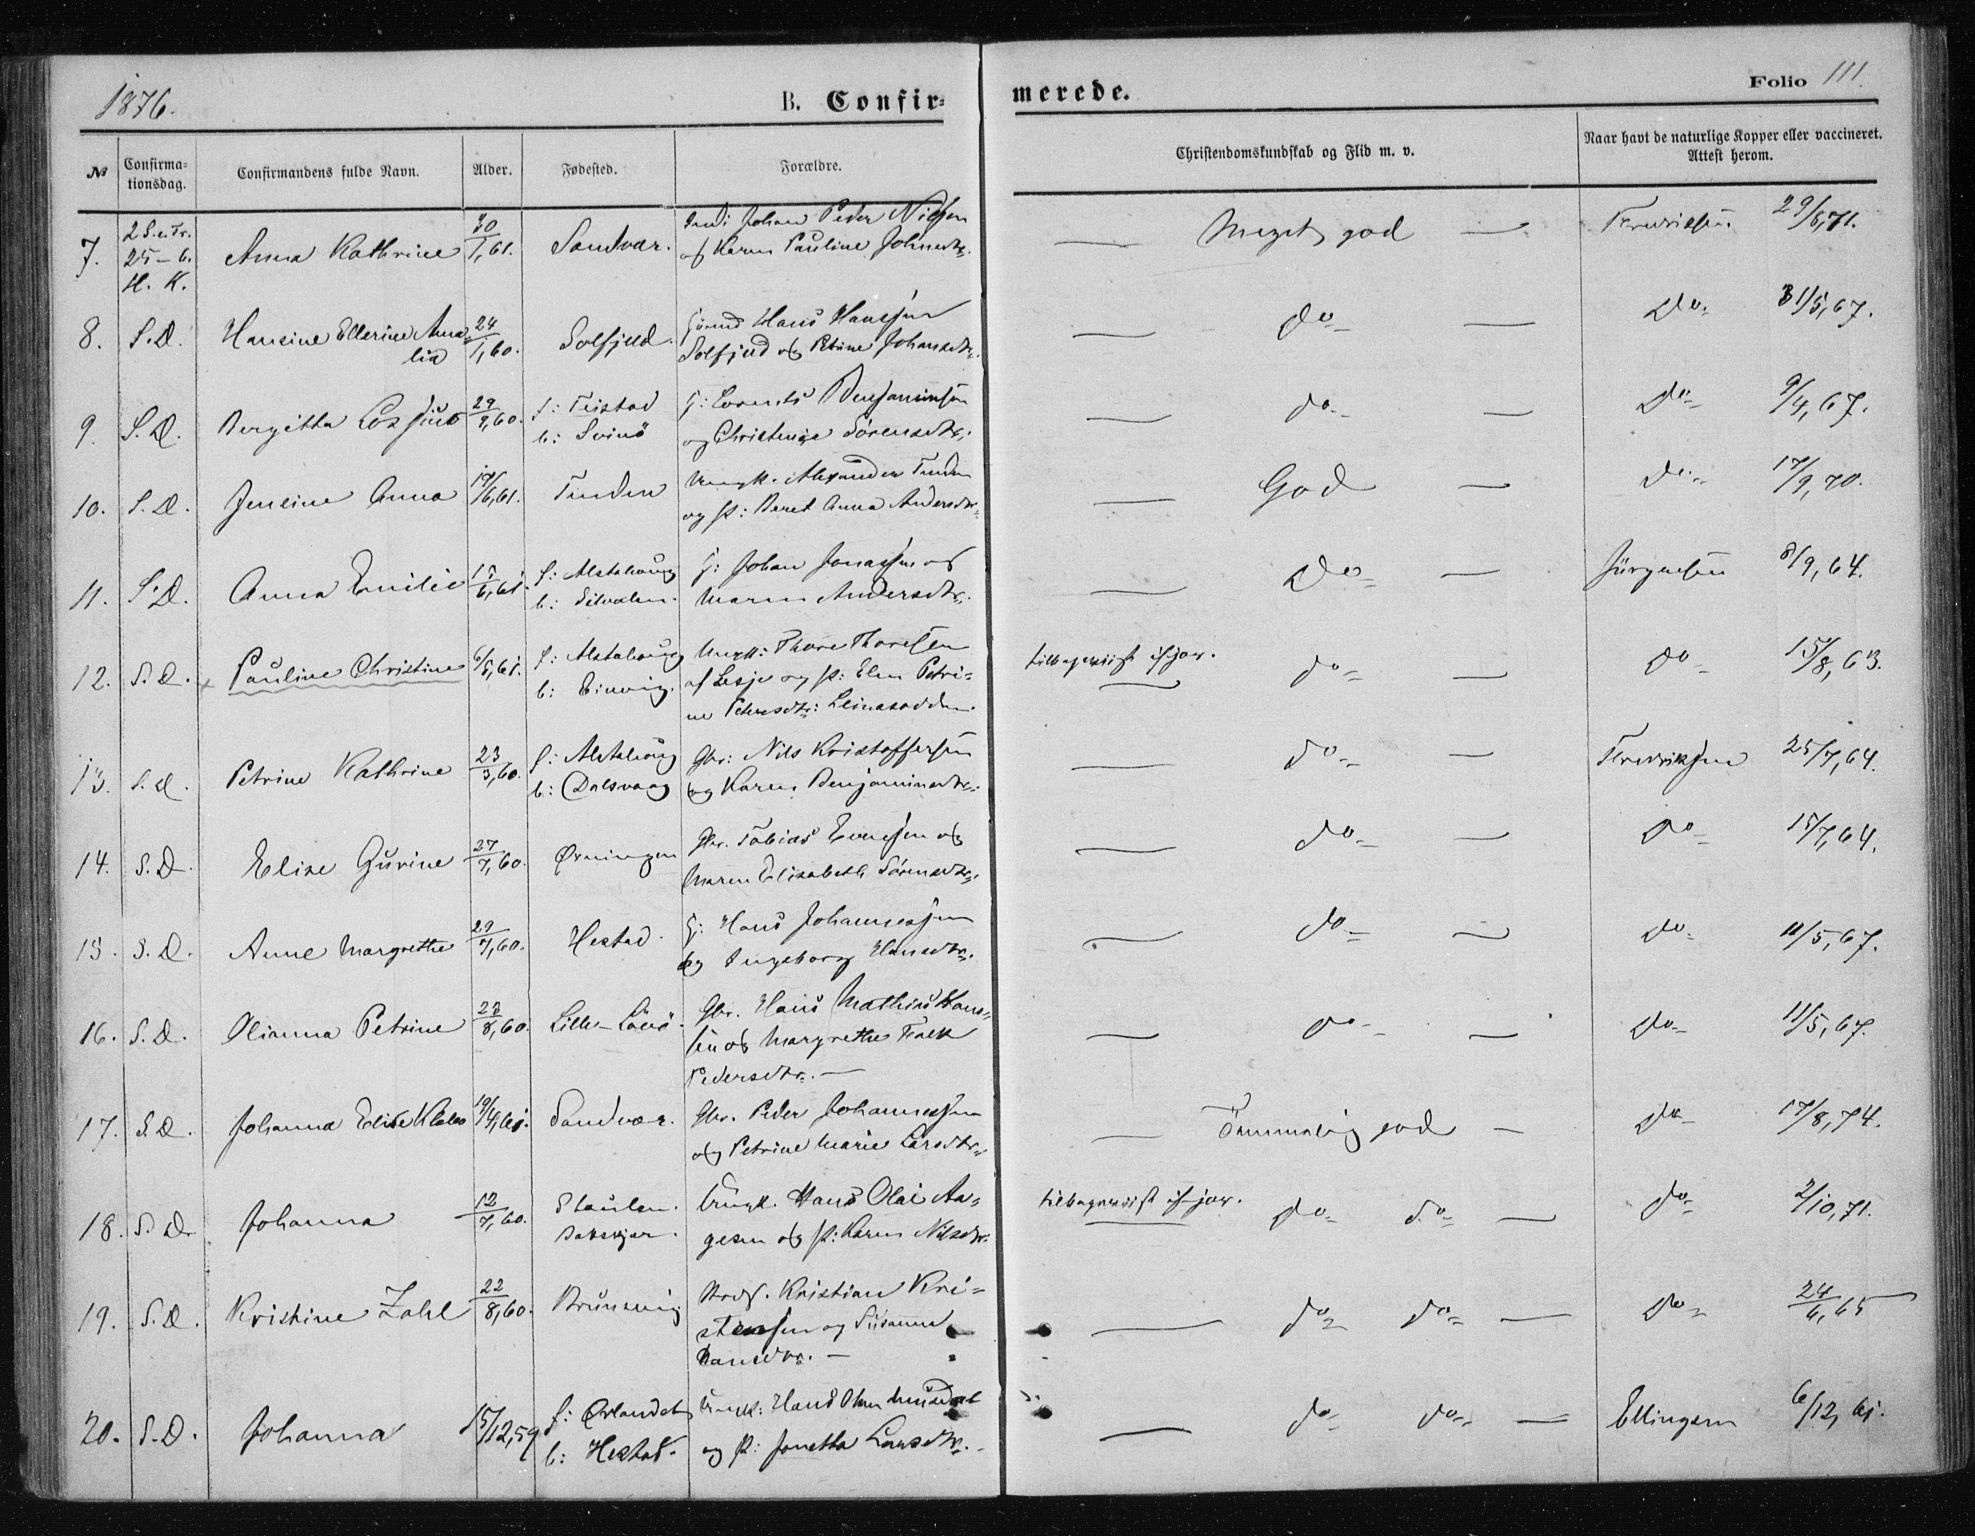 1876.
B. Confir-
merede.
Folio 111.
№
Confirma-
tionsdag.
Confirmandens fulde Navn.
Alder.
Fødested.
Forældre.
Christendomskundskab og Flid m. v.
Naar havt de naturlige Kopper eller vaccineret.
Attest herom.
7. 2 S. e. Tr. 25 – 6. H. K. Anna Kathrine 30/1, 61. Sandvær. Johan Peder Nilssen
og Karen Pauline Johnsdtr. — Meget god — Fredriksen 29/6, 71.
8. S. D. Hansine Ellerine Ama-
lia 24/1, 60. Solfjeld. Hans Hanssen
Solfjeld og Petrine Johansdtr. — do — Do 31/5, 67.
9. S. D. Bergitta 29/9, 60. f: Teistad
b: Svinö G: Lorents Benjaminsen
og Christense Sörensdtr. — do — Do 9/4, 67.
10. S. D. Jensine Anna 17/6, 61. Tinden Ungk. Alexander Tinden
og p: Beret Anna Andersdtr. — God — do 17/9, 70.
11. S. D. Anna Emilie 15/6, 61. f: Alstahoug
b: Silvalen. G: Johan Jonassen og
Maren Andersdtr. — Do — Jürgensen 8/9, 64.
12. S. D. Pauline Christine 6/5, 61. f: Alstahoug
b: Ungk: Thore Thoresen
af Lesje og p: Elen Petri-
ne Petersdtr: Leinesodden. tilbagevist ifjor. — do — do 15/8, 63.
13. S. D. Petrine Kathrine 23/3, 60. f: Alstahoug
b: Dalsvaag Gbr: Nils Kristoffersen
og Karen Benjaminsdtr. — do — Fredriksen 25/7, 64.
14. S. D. Elise Gurine 27/7, 60. Ørningen Gbr. Tobias Evensen og
Maren Elisabeth Sörensdtr. — do — Do 15/7, 64.
15. S. D. Anne Margrethe 29/7, 60. Hestad. G: Hans Johannessen
og Ingeborg Hansdtr. — do — do 11/5, 67.
16. S. D. Olianna Petrine 23/8, 60. Lille-Gbr. Hans Mathias Hans-
sen og Margrethe Falk
Pedersdtr. — — do — Do 11/5, 67.
17. S. D. Johanna Elise 19/4, 61. Sandvær. Gbr. Peder Johannessen
og Petrine Marie Larsdtr. — Temmelig god — Do 17/8, 74.
18. S. D. Johanna 12/7, 60. Staulen.
Ungk. Hans Olai Aa-
gesen og p: Karen Nilsdtr. tilbagevist ifjor. — do do — do 2/10, 71.
19. S. D. Kristine Zahl 22/8, 60. Brunsvig Kristian Kri-
stensen og Susanna
Hansdtr. — — do do — Do 24/6, 65
20. S. D. Johanna 15/12, 59 f: Ørlandet
b: Hestad. Ungk: Hans Olsen
og p: Jonetta Larsdtr. — do do — Ellingsen 6/12, 61.